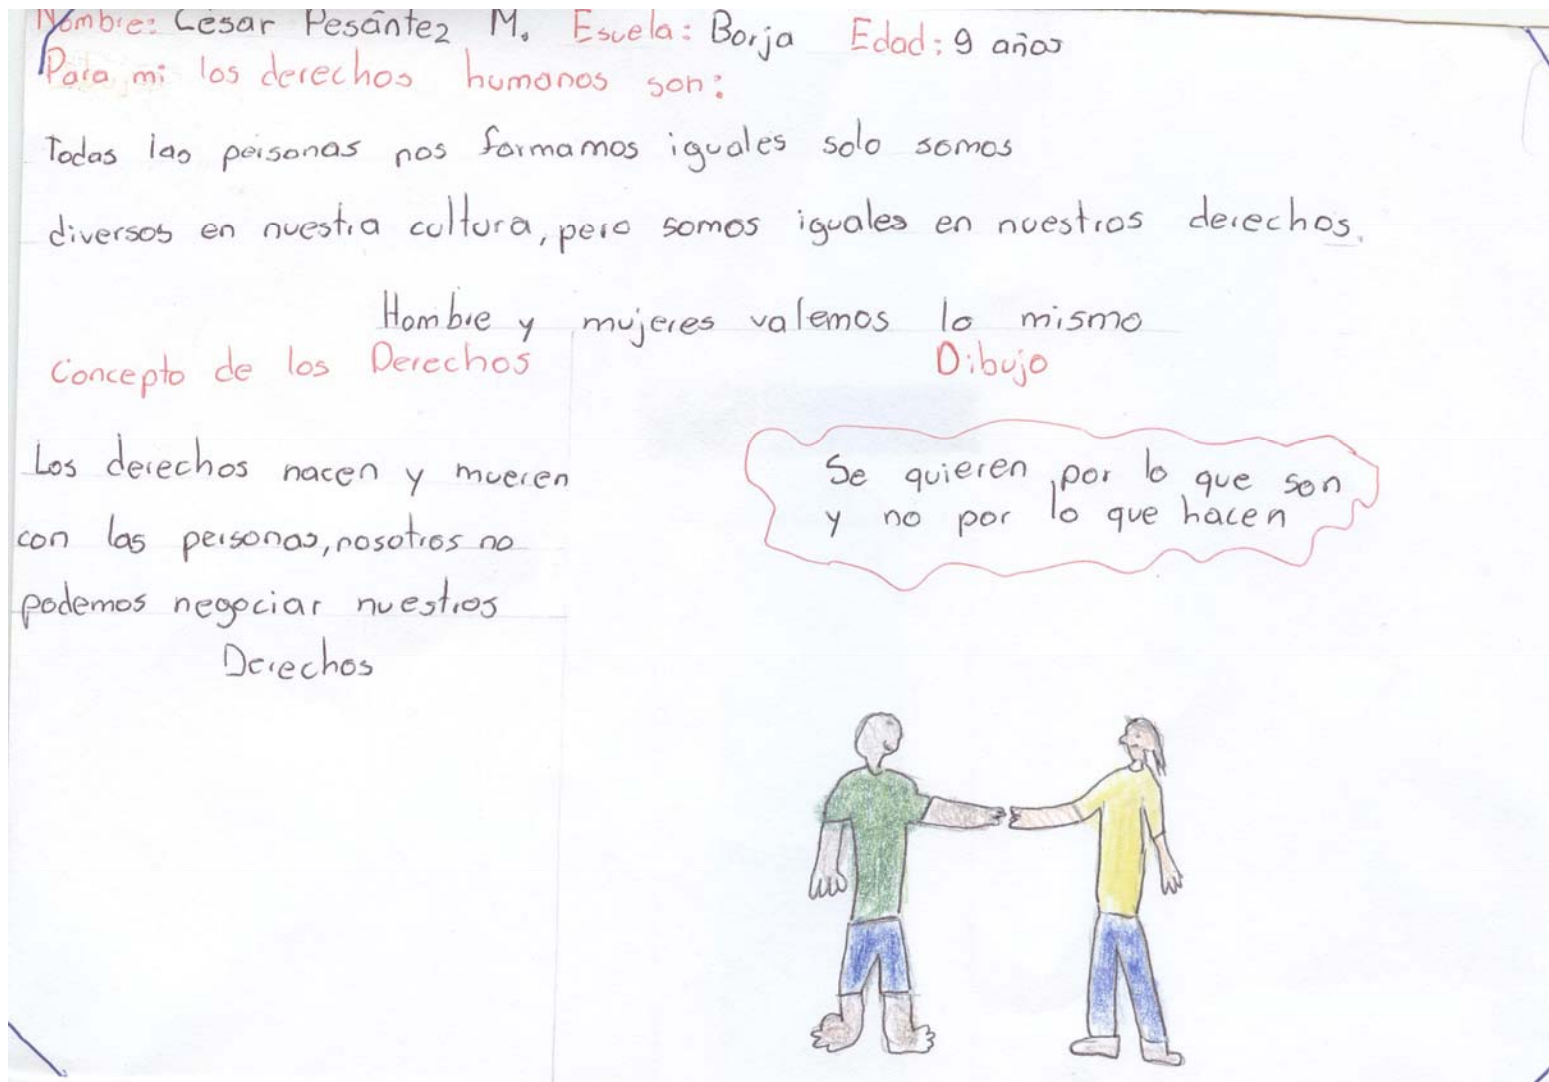 Nombre: César Pesántez M. Escuela: Borja Edad: 9 años
Para mi los derechos humanos son:
Todas las personas nos formamos iguales solo somos
diversos en nuestra cultura, pero somos iguales en nuestros derechos.
Hombre y mujeres valemos lo mismo
Concepto de los Derechos
Los derechos nacen y mueren
con las personas, nosotros no
podemos negociar nuestros
Derechos
Dibujo
Se quieren por lo que son
y no por lo que hacen